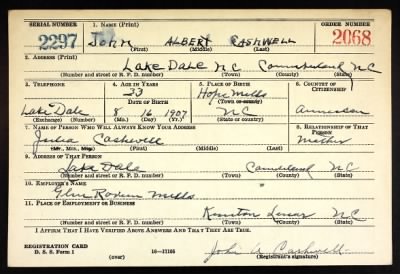 SERIAL NUMBER 1. NAME (Print) ORDER NUMBER
2297 JOHN ALBERT CASHWELL 2068
(First) (Middle) (Last)
2. ADDRESS (Print)
Lake Dale N.C. Cumberland, N.C.
(Number and street or R. F. D. number) (Town) (County) (State)
3. TELEPHONE 4. AGE IN YEARS 5. PLACE OF BIRTH 6. COUNTRY OF CITIZENSHIP
33 Hope Mills
DATE OF BIRTH (Town or county)
Lake Dale 8 16 1907 N.C. American
(Exchange) (Number) (Mo.) (Day) (Yr.) (State or country)
7. NAME OF PERSON WHO WILL ALWAYS KNOW YOUR ADDRESS 8. RELATIONSHIP OF THAT PERSON
Julia Cashwell Mother
(Mr., Mrs., Miss) (First) (Middle) (Last)
9. ADDRESS OF THAT PERSON
Lake Dale Cumberland NC
(Number and street or R. F. D. number) (Town) (County) (State)
10. EMPLOYER'S NAME
Mills
11. PLACE OF EMPLOYMENT OR BUSINESS
Kinston Lenoir N.C.
(Number and street or R. F. D. number) (Town) (County) (State)
I AFFIRM THAT I HAVE VERIFIED ABOVE ANSWERS AND THAT THEY ARE TRUE.
REGISTRATION CARD
D. S. S. Form 1 (over) 16—17105 John A Cashwell
(Registrant's signature)